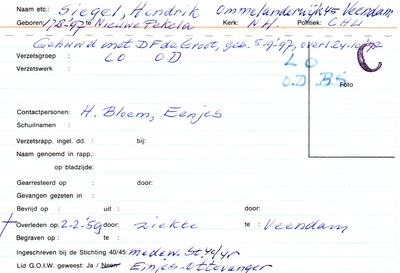 Naam etc.: Siegel, Hindrik Ommelanderwijk 45 Veendam
Geboren: 17-8-'97 te Nieuwe Pekela Kerk: N.H. Politiek: CHU
Gehuwd met D.F. de Groot, geb. 5-9-'97, overl. 24-10-
Verzetsgroep : LO O.D
Verzetswerk :
LO
O.D BS
C
Foto
Contactpersonen: H. Bloem, Eenjes
Schuilnaam :
Verzetsrapp. ingel. dd. : bij:
Naam genoemd in rapp.:
op bladzijde:
Gearresteerd op : door:
Gevangen gezeten in :
Bevrijd op : uit : door:
Overleden op : 2-2-'59 door: ziekte te : Veendam
Begraven op : te :
Ingeschreven bij de Stichting 40/45: medew. St. 40/45
Lid G.O.I.W. geweest: Ja / Neen Einjes-Ottevanger